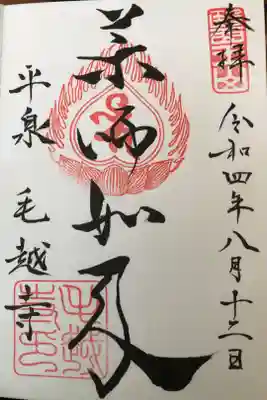 奉拝
令和四年八月十二日
薬師如来
平泉 毛越寺